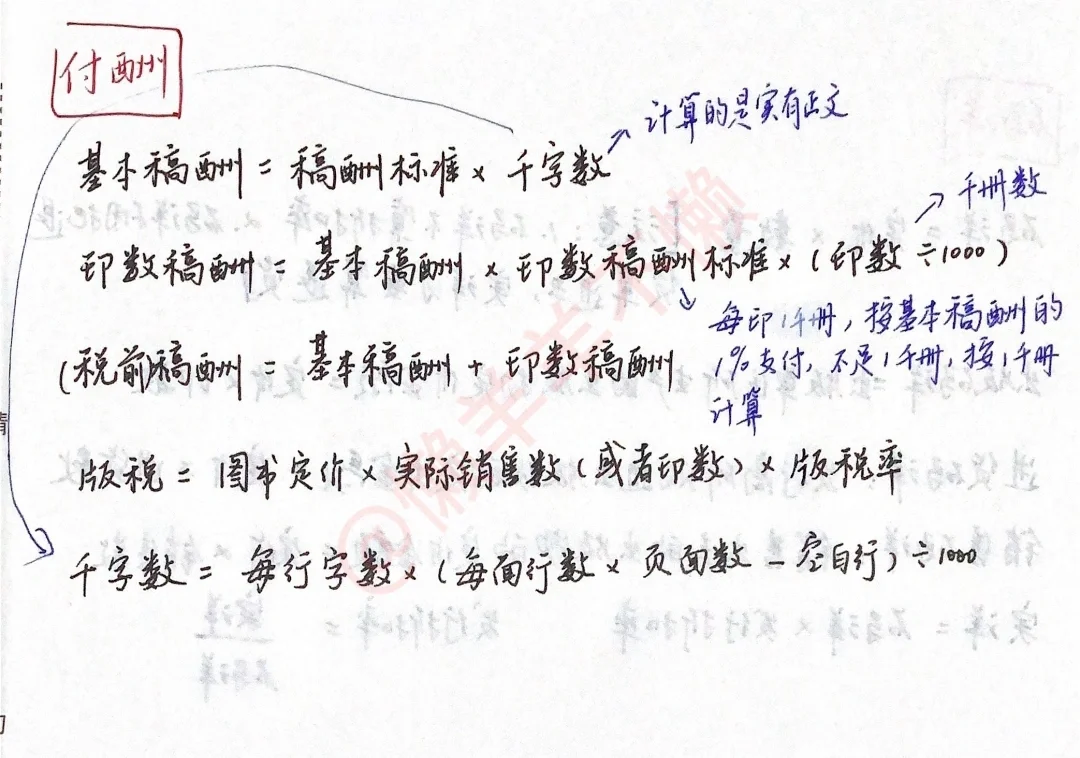 付酬
计算的是实有正文
基本稿酬 = 稿酬标准 × 千字数
千册数
印数稿酬 = 基本稿酬 × 印数稿酬标准 × (印数 ÷1000)
每印1千册，按基本稿酬的
1%支付，不足1千册，按1千册
计算
(税前)稿酬 = 基本稿酬 + 印数稿酬
版税 = 图书定价 × 实际销售数(或者印数) × 版税率
千字数 = 每行字数×(每面行数 × 页面数 - 空白行) ÷1000
@懒羊羊不懒